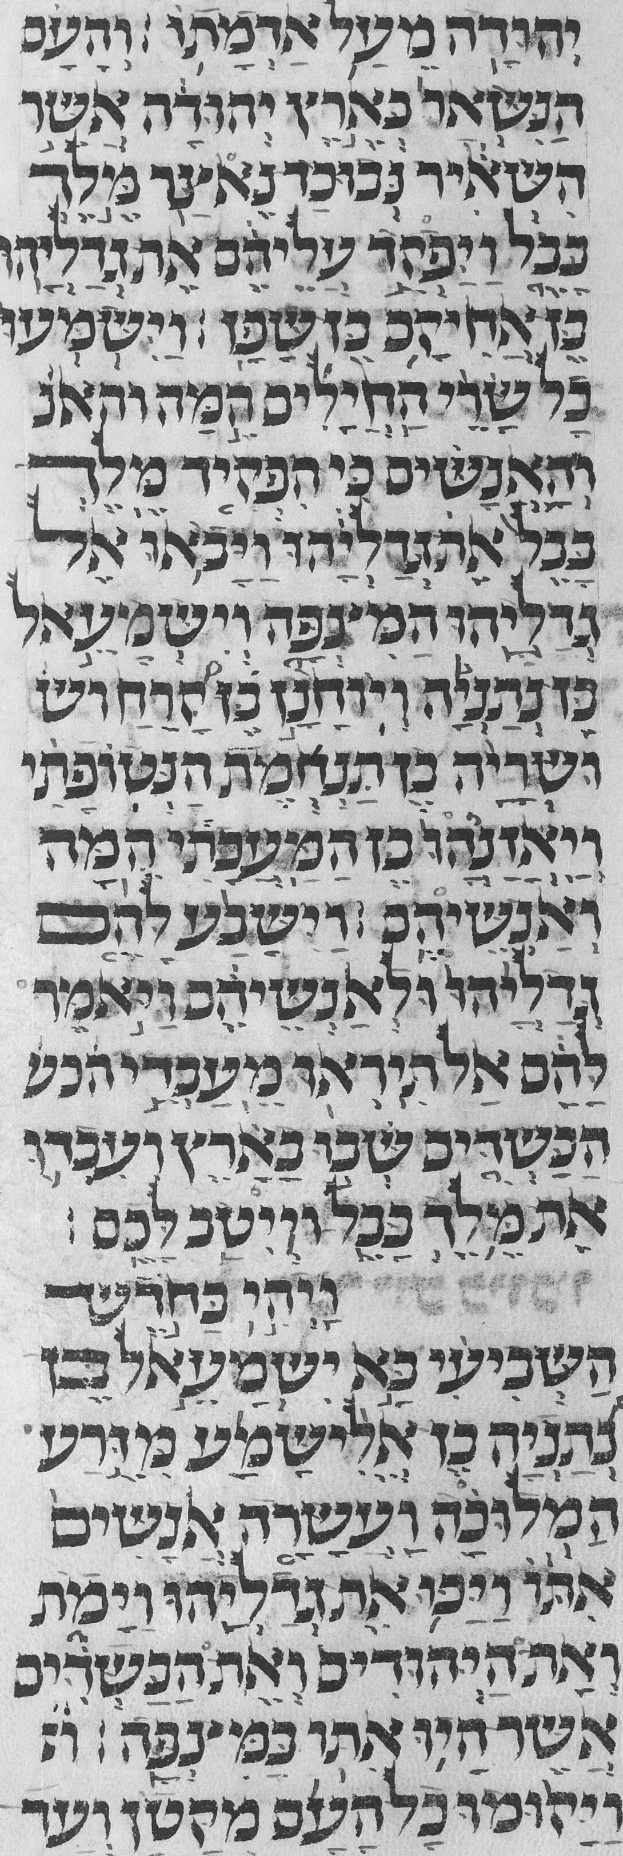 יהודה מעל אדמתו ׃ והעם
הנשאר בארץ יהודה אשר
השאיר נבוכדנאצר מלך
בבל ויפקד עליהם את גדליהו
בן אחיקם בן שפן ׃ וישמעו
כל שרי החילים המה והאנ
והאנשים כי הפקיד מלך
בבל את גדליהו ויבאו אל
גדליהו המצפה וישמעאל
בן נתניה ויוחנן בן קרח וש
ושריה בן תנחמת הנטופתי
ויאזניהו בן המעכתי המה
ואנשיהם ׃ וישבע להם
גדליהו ולאנשיהם ויאמר
להם אל תיראו מעבדי הכש
הכשדים שבו בארץ ועבדו
את מלך בבל וייטב לכם ׃
ויהי בחדש
השביעי בא ישמעאל בן
נתניה בן אלישמע מזרע
המלוכה ועשרה אנשים
אתו ויכו את גדליהו וימת
ואת היהודים ואת הכשדים
אשר היו אתו במצפה ׃ וי
ויקומו כל העם מקטן ועד